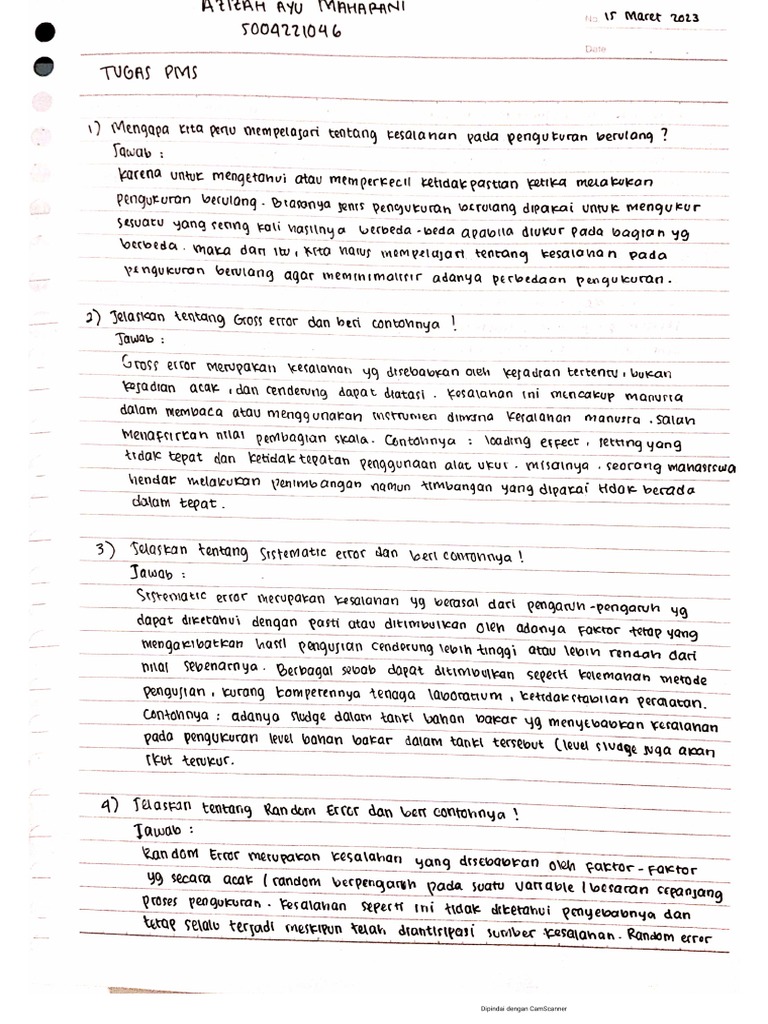 AZIZAH AYU MAHARANI
No. 15 Maret 2023
5004221046
Date
TUGAS PMS
1) Mengapa kita perlu mempelajari tentang kesalahan pada pengukuran berulang ?
Jawab :
Karena untuk mengetahui atau memperkecil ketidakpastian ketika melakukan
pengukuran berulang. Biasanya jenis pengukuran berulang dipakai untuk mengukur
sesuatu yang sering kali hasilnya berbeda-beda apabila diukur pada bagian yg
berbeda. maka dari itu, kita harus mempelajari tentang kesalahan pada
pengukuran berulang agar meminimalisir adanya perbedaan pengukuran.
2) Jelaskan tentang Gross error dan beri contohnya !
Jawab :
Gross error merupakan kesalahan yg disebabkan oleh kejadian tertentu, bukan
kejadian acak, dan cenderung dapat diatasi. kesalahan ini mencakup manusia
dalam membaca atau menggunakan instrumen dimana kesalahan manusia. salah
menafsirkan nilai pembagian skala. Contohnya : loading effect, setting yang
tidak tepat dan ketidaktepatan penggunaan alat ukur. misalnya. seorang mahasiswa
hendak melakukan penimbangan namun timbangan yang dipakai tidak berada
dalam tepat.
3) Jelaskan tentang Sistematic error dan beri contohnya !
Jawab :
Sistematic error merupakan kesalahan yg berasal dari pengaruh-pengaruh yg
dapat diketahui dengan pasti atau ditimbulkan oleh adanya faktor tetap yang
mengakibatkan hasil pengujian cenderung lebih tinggi atau lebih rendah dari
nilai sebenarnya. Berbagai sebab dapat ditimbulkan seperti kelemahan metode
pengujian, kurang kompetennya tenaga laboratium, ketidakstabilan peralatan.
Contohnya : adanya sludge dalam tanki bahan bakar yg menyebabkan kesalahan
pada pengukuran level bahan bakar dalam tanki tersebut (level sludge juga akan
ikut terukur.
4) Jelaskan tentang Random Error dan beri contohnya !
Jawab :
Random Error merupakan kesalahan yang disebabkan oleh faktor-faktor
yg secara acak / random berpengaruh pada suatu variable / besaran sepanjang
proses pengukuran. kesalahan seperti ini tidak diketahui penyebabnya dan
tetap selalu terjadi meskipun telah diantisipasi sumber kesalahan. Random error
Dipindai dengan CamScanner